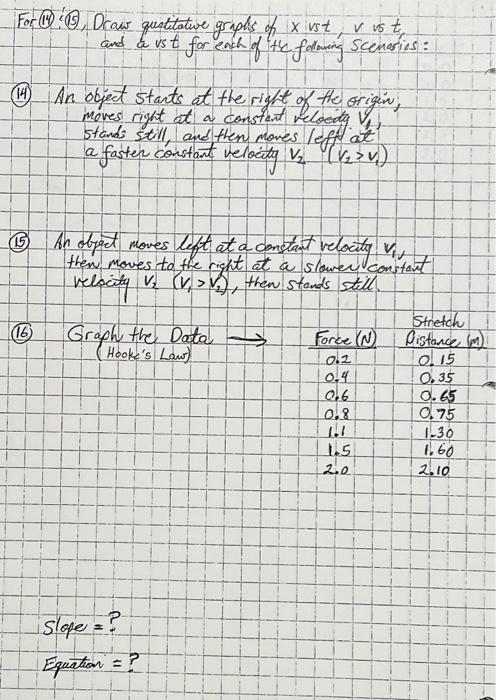 For (14) & (15), Draw qualitative graphs of x vs t, v vs t,
and a vs t for each of the following scenarios:
(14) An object starts at the right of the origin,
moves right at a constant velocity V₁,
stands still, and then moves left at
a faster constant velocity V₂ (V₂ > V₁)
(15) An object moves left at a constant velocity V₁,
then moves to the right at a slower constant
velocity V₂ (V₁ > V₂), then stands still.
(16) Graph the Data → Force (N) Stretch Distance (m)
(Hooke's Law)
0.2 0.15
0.4 0.35
0.6 0.65
0.8 0.75
1.1 1.30
1.5 1.60
2.0 2.10
Slope = ?
Equation = ?